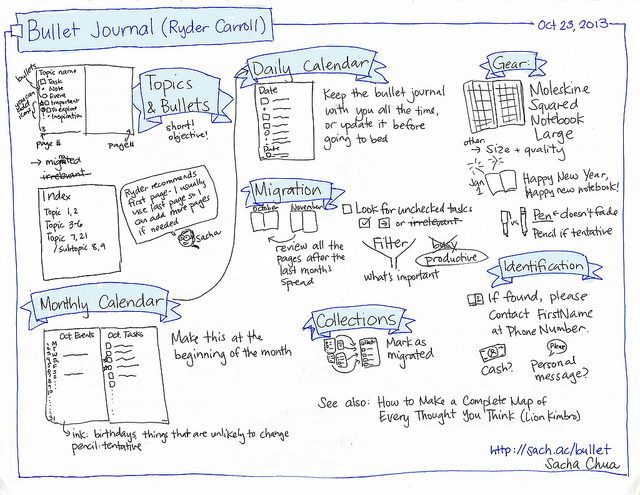 Bullet Journal (Ryder Carroll)
Oct 23, 2013
bullets
you can add icons
Topic name
Task
Note
Event
Important
To explore
Inspiration
page #
page #
→ migrated
irrelevant
Topics
& Bullets
short!
objective!
Index
Topic 1, 2
Topic 3-6
Topic 7, 21
/Subtopic 8, 9
Ryder recommends
first page - I usually
use last page so I
can add more pages
if needed
Sacha
Monthly Calendar
Oct. Events
Oct. Tasks
Make this at the
beginning of the month
ink: birthdays, things that are unlikely to change
pencil: tentative
Daily Calendar
Date
Date
Keep the bullet journal
with you all the time,
or update it before
going to bed
Migration
October
November
review all the
pages after the
last month's
spread
Look for unchecked tasks
or irrelevant
Filter
what's important
busy
productive
Collections
Mark as
migrated
See also: How to Make a Complete Map of
Every Thought You Think (Lion Kimbro)
Gear:
Moleskine
Squared
Notebook
Large
other
→ Size + quality
Jan
1
Happy New Year,
Happy new notebook!
Pen ← doesn't fade
Pencil if tentative
Identification
If found, please
contact FirstName
at Phone Number.
Cash?
Please
Personal
message?
http://sach.ac/bullet
Sacha Chua